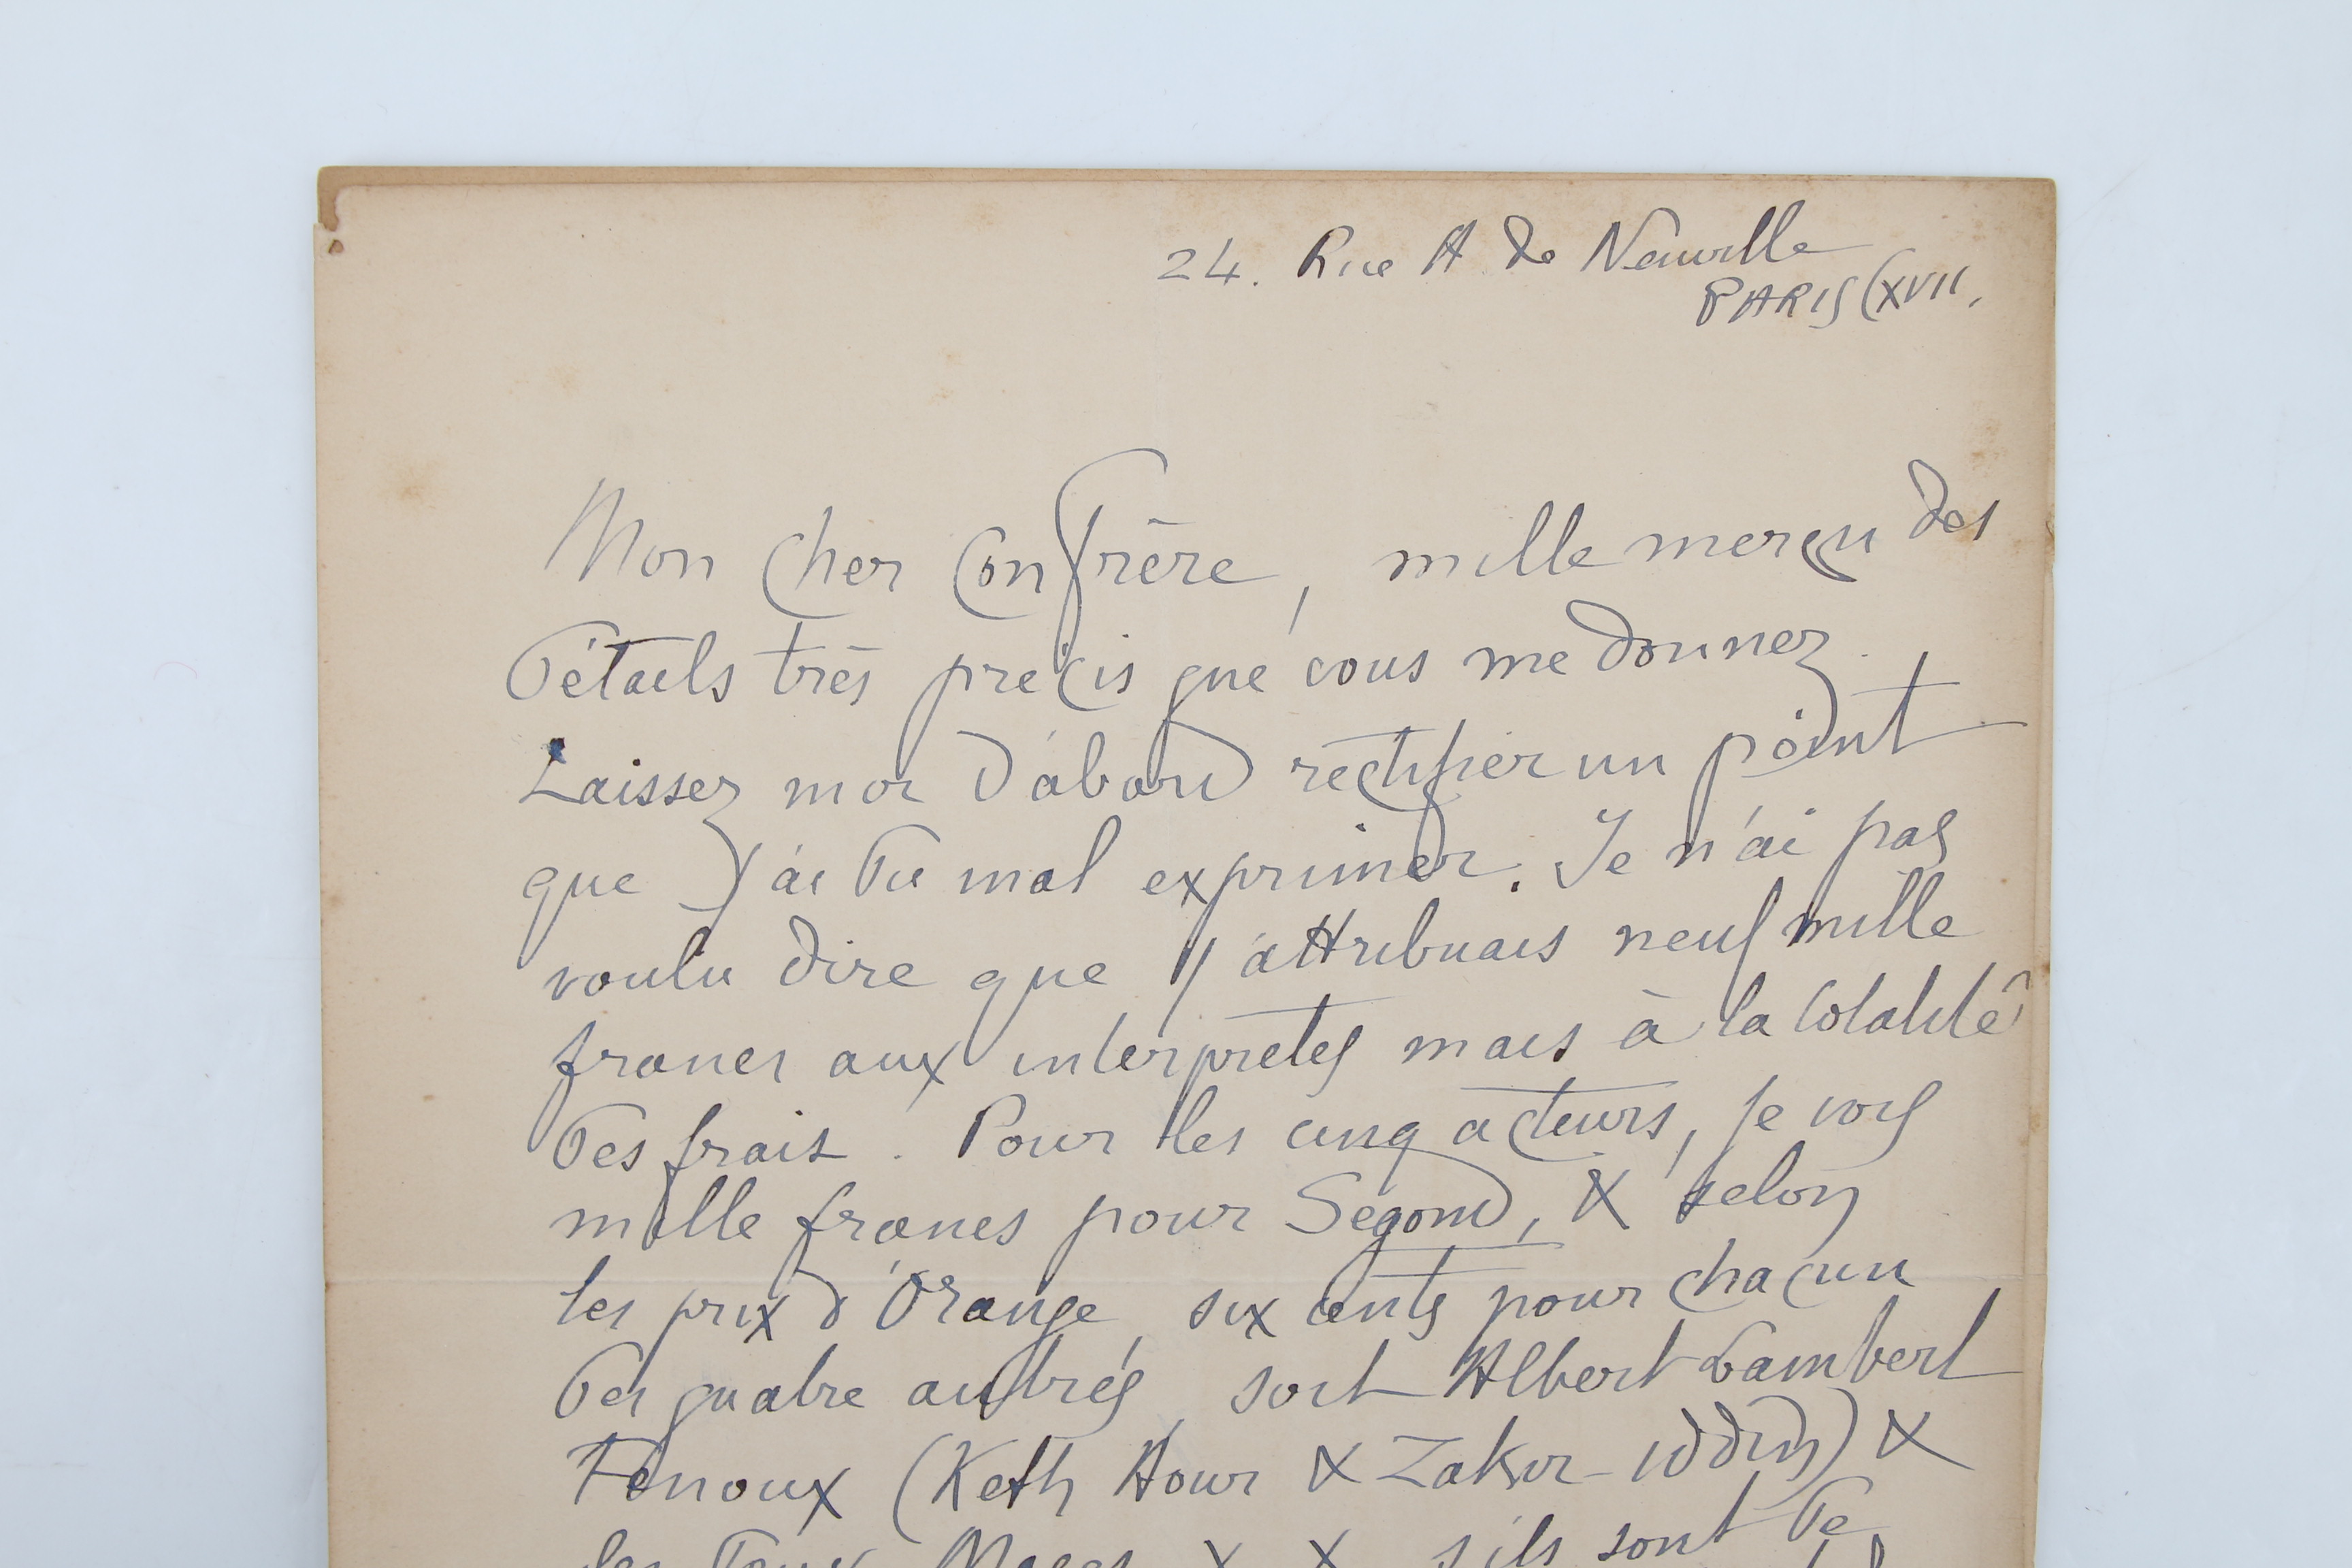 24. Rue A de Neuville
PARIS (XVII.
Mon cher Confrère, mille merci des
détails très précis que vous me donnez.
Laissez moi d'abord rectifier un point
que j'ai dû mal exprimer. Je n'ai pas
voulu dire que j'attribuais neuf mille
francs aux interprètes mais à la totalité
des frais. Pour les cinq acteurs, je vois
mille francs pour Segond, & selon
les prix d'Orange, six cents pour chacun
des quatre autres, soit Albert Lambert
Fenoux (Keth Hour & Zakir-iddin) &
les deux Mages X X s'ils sont de